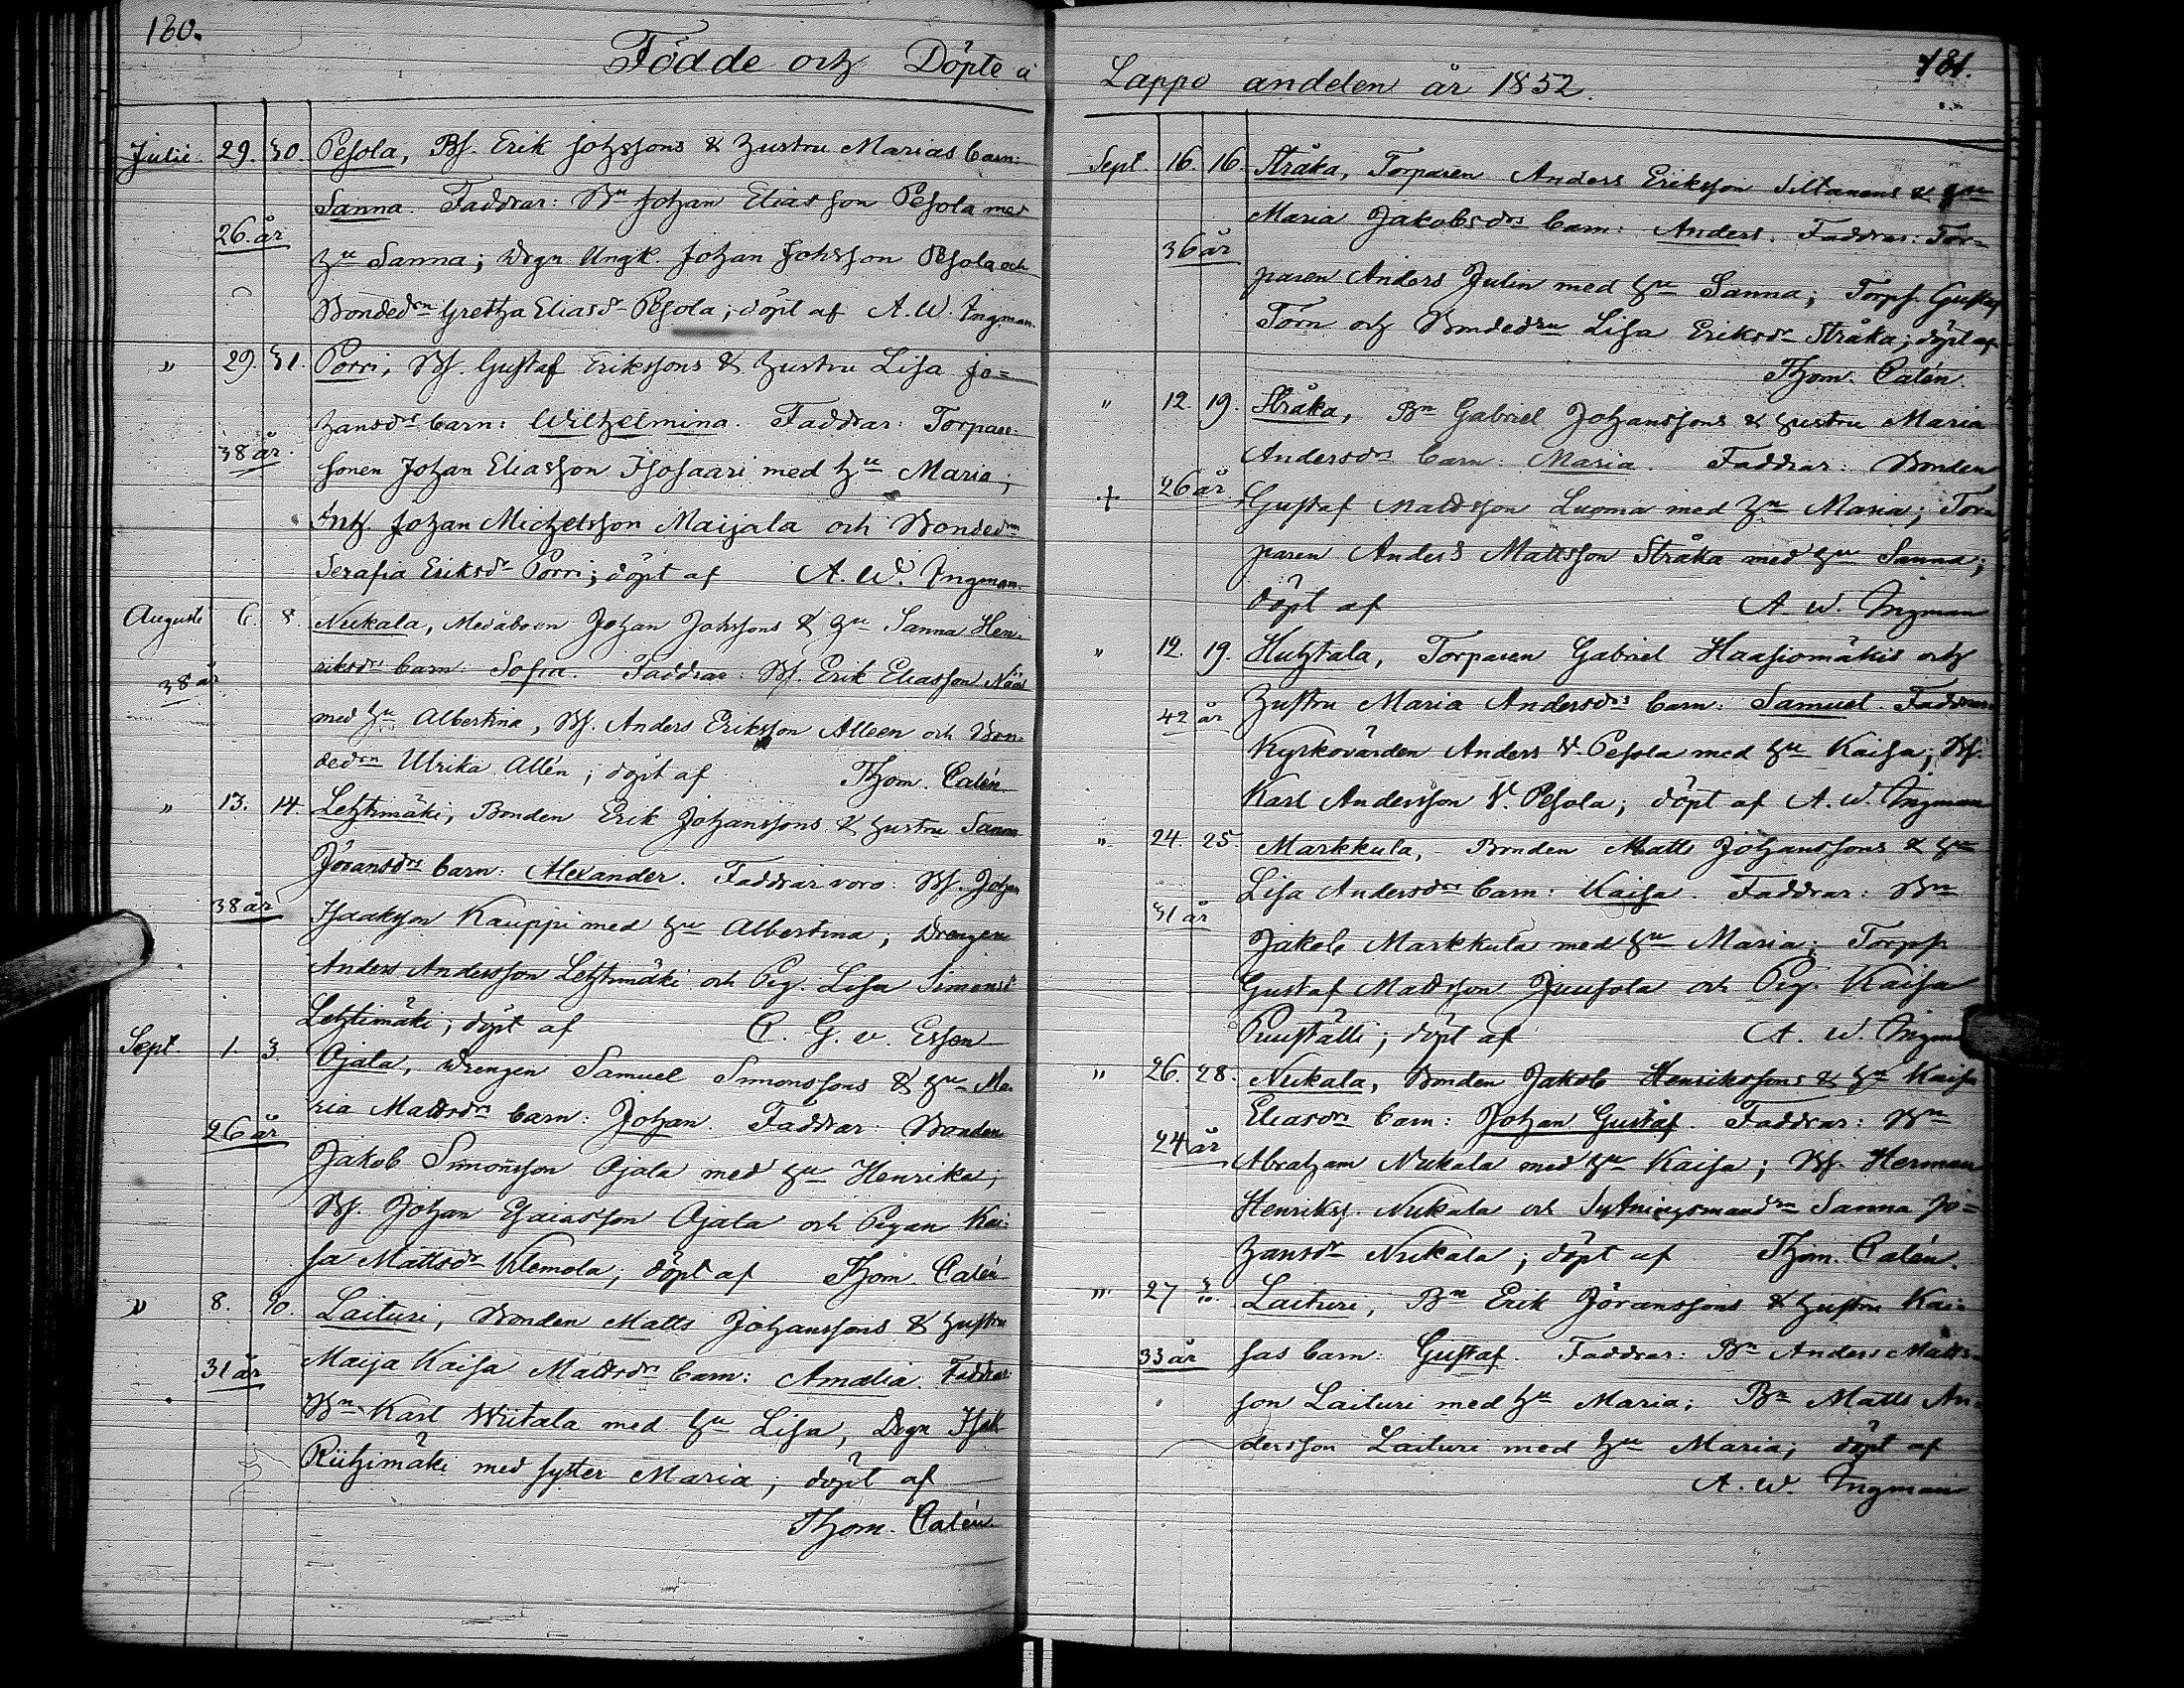 180.
Födde och Döpte i
Julii 29. 30. Pesola, Bs. Erik Johssons & hustru Marias barn:
Sanna. Faddrar: Bn Johan Eliasson Pesola med
26 år
hu Sanna; Drgn Ungk. Johan Johsson Pesola och
Bondedrn Gretha Eliasdr Pesola; döpt af A. W. Ingman.
" 29. 31. Porri, Bs. Gustaf Erikssons & hustru Lisa Jo=
hansdrs barn: Wilhelmina. Faddrar: Torpare-
38 år.
sonen Johan Eliasson Isosaari med hu Maria;
Johan Michelsson Maijala och Bondedrn
Serafia Eriksdr Porri; döpt af A. W. Ingman.
Augusti 6. 8. Nukala, Medåboen Johan Johssons & hu Sanna Hen-
riksdrs barn: Sofia. Faddrar: Bs. Erik Eliasson
38 år
med hu Albertina, Bs. Anders Eriksson Alleen och Bon-
dedrn Ulrika Allén; döpt af Thom. Calén
" 13. 14. Lehtimäki, Bonden Erik Johanssons & hustru Sanna
Jöransdrs barn: Alexander. Faddrar voro: Bs. Johan
38 år
Isaaksson Kauppi med hu Albertina; Drengen
Anders Andersson Lehtimäki och Pig. Lisa Simonsdr
Lehtimäki; döpt af C. G. v. Essen
Sept. 1. 3. Ojala, Drengen Samuel Simonssons & hu Ma-
ria Mattsdrs barn: Johan. Faddrar: Bonden
26 år
Jakob Simonsson Ojala med hu Henrika;
Bs. Johan Esaiasson Ojala och Pigan Kai-
sa Mattsdr Klemola; döpt af Thom. Calén
" 8. 90. Laituri, Bonden Matts Johanssons & hustru
Maija Kaisa Mattsdrs barn: Amalia. Faddrar:
31 år
Bn Karl Wiitala med hu Lisa, Drgn Isak
Riihimäki med syster Maria; döpt af
Thom. Calén
Lappo andelen år 1852.
181.
Sept. 16. 16. Stråka, Torparen Anders Eriksson Siltanens & hu
Maria Jakobsdrs barn: Anders. Faddrar: Tor=
36 år
paren Anders Julin med hu Sanna; Torps. Gustaf
Törn och Bondedrn Lisa Eriksdr Stråka; döpt af
Thom. Calén.
" 12. 19. Stråka, Bn Gabriel Johanssons & hustru Maria
Andersdrs barn: Maria. Faddrar: Bonden
+ 26 år
Gustaf Mattsson Luoma med hu Maria; Tor-
paren Anders Mattsson Stråka med hu Sanna;
döpt af A. W. Ingman
" 12. 19. Huhtala, Torparen Gabriel Haapiomäkis och
hustru Maria Andersdrs barn: Samuel. Faddrar:
42 år
Kyrkovärden Anders V. Pesola med hu Kaisa; Bs.
Karl Andersson V. Pesola; döpt af A. W. Ingman
" 24. 25. Markkula, Bonden Matts Johanssons & hu
Lisa Andersdrs barn: Kaisa. Faddrar: Bn
31 år
Jakob Markkula med hu Maria; Torps.
Gustaf Mattsson Juusola och Pig. Kaisa
Puuställi; döpt af A. W. Ingman
" 26. 28. Nukala, Bonden Jakob Henrikssons & hu Kaisa
Eliasdrs barn: Johan Gustaf. Faddrar: Bn
24 år
Abraham Nukala med hu Kaisa; Bs. Herman
Henrikss. Nukala och Sytningsmandrn Sanna Jo=
hansdr Nukala; döpt af Thom. Calén.
" 27 Laituri, Bn Erik Jöranssons & hustru Kai-
33 år
sas barn: Gustaf. Faddrar: Bn Anders Matts-
son Laituri med hu Maria; Bn Matts An-
dersson Laituri med hu Maria; döpt af
A. W. Ingman